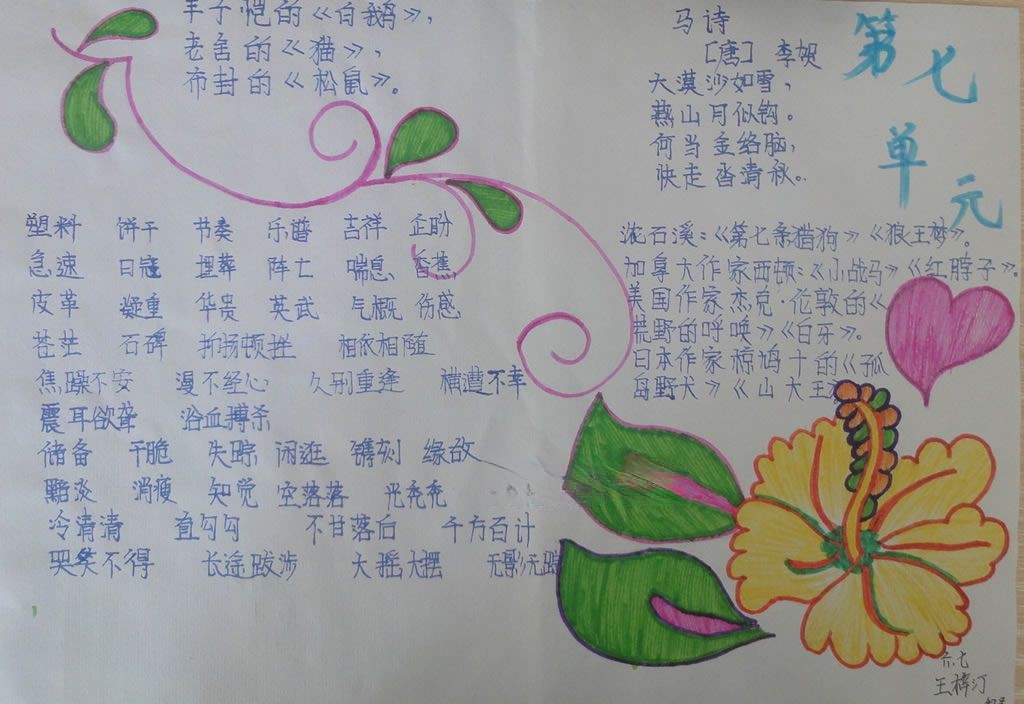 丰子恺的《白鹅》，
老舍的《猫》，
布封的《松鼠》。
马诗
［唐］ 李贺
大漠沙如雪，
燕山月似钩。
何当金络脑，
快走沓清秋。
第七
单元
沈石溪：《第七条猎狗》《狼王梦》。
加拿大作家西顿：《小战马》《红脖子》。
美国作家杰克·伦敦的《
荒野的呼唤》《白牙》。
日本作家椋鸠十的《孤
岛野犬》《山大王
塑料 饼干 节奏 乐谱 吉祥 企盼
急速 日冠 埋葬 阵亡 喘息 香蕉
皮革 凝重 华贵 英武 气概 伤感
苍茫 石碑 抑扬顿挫 相依相随
焦躁不安 漫不经心 久别重逢 横遭不幸
震耳欲聋 浴血搏杀
储备 干脆 失踪 闲逛 镌刻 缘故
黯淡 消瘦 知觉 空落落 光秃秃
冷清清 直勾勾 不甘落后 千方百计
哭笑不得 长途跋涉 大摇大摆 无影无踪
六.七
王梓汀